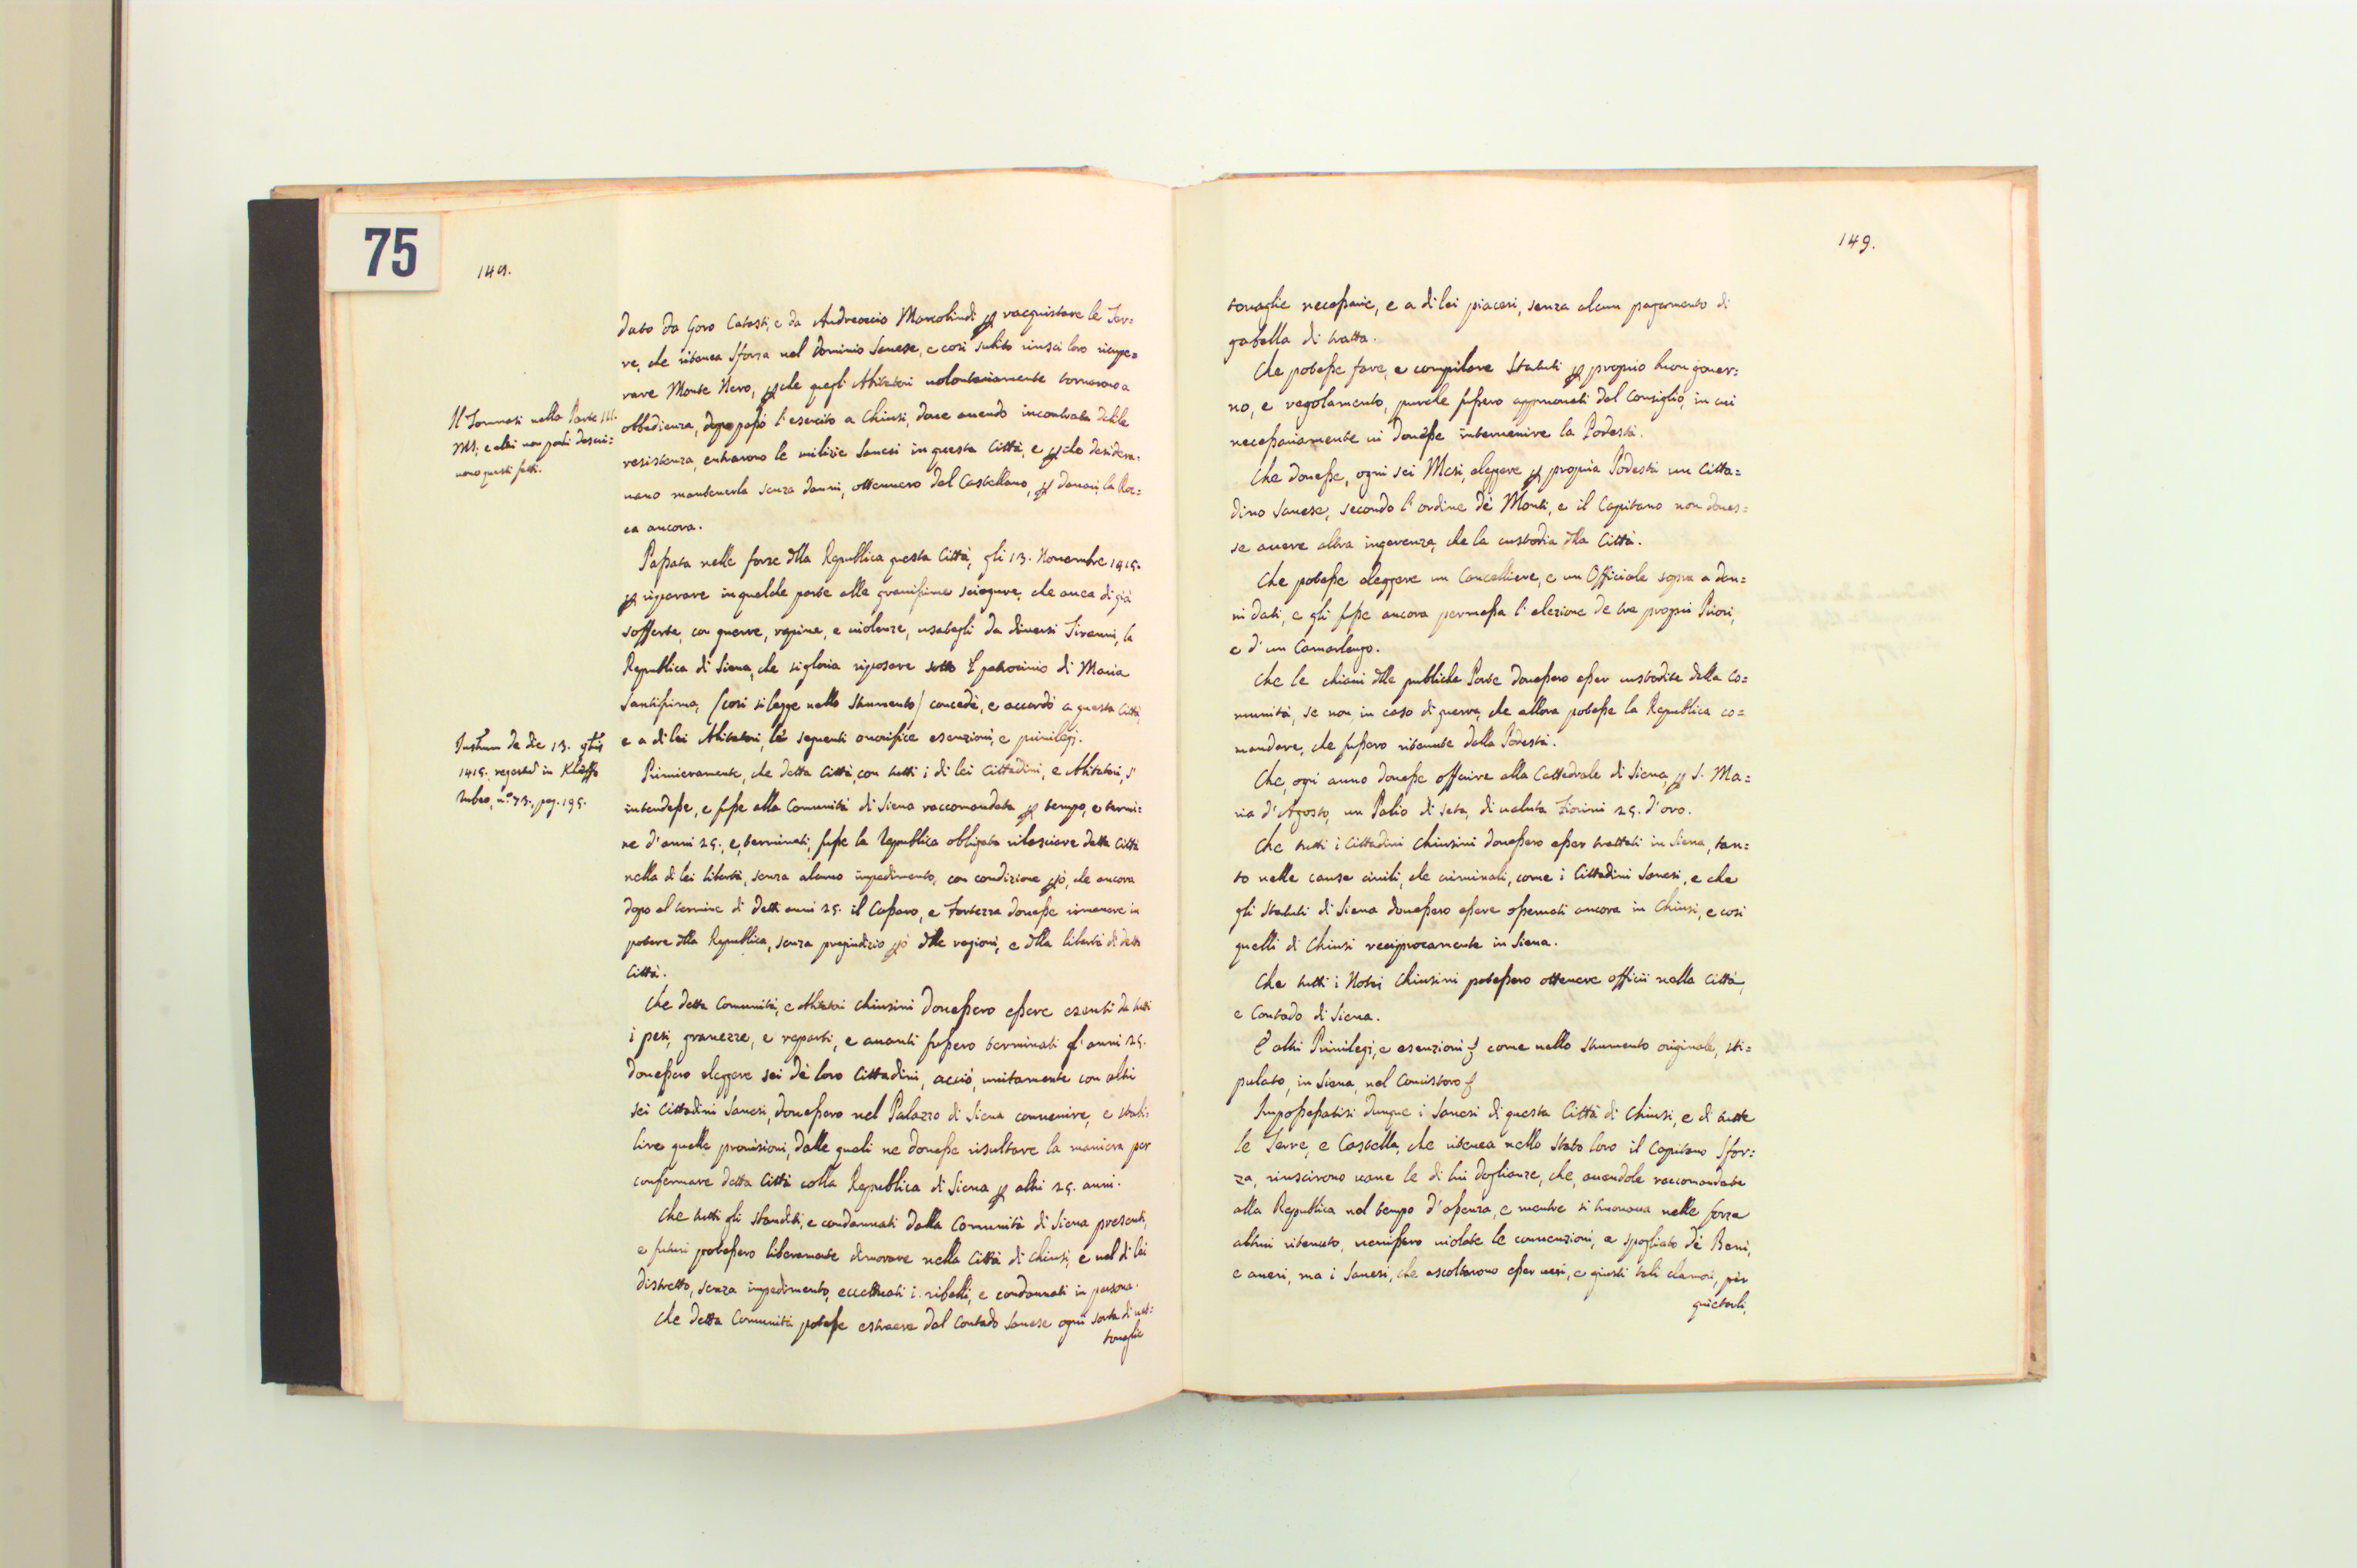 75
148.
dato da Goro Catasti, e da Andreoccio Marcolindi ꝑ racquistare le Ter=
re, che ritenea Sforza nel Dominio Sanese, e così subito riuscì loro ricupe=
rare Monte Nero, ꝑche quegli Abitatori volontariamente tornarono a
obbedienza, dopo passò l'esercito a Chiusi, dove avendo incontrata debile
resistenza, entrarono le milizie Sanesi in questa Città, e ꝑche desidera=
vano mantenerla senza danni, ottennero dal Castellano, ꝑ denari, la Roc=
ca ancora.
Il Tommasi nella Parte III.
MS: e altri non pochi descri=
vono questi fatti.
Passata nelle forze della Republica questa Città, gli 13. Novembre 1415.
ꝑ riparare in qualche parte alle gravissime sciagure, che avea di già
sofferte, con guerre, rapine, e violenze, usategli da diversi Tiranni, la
Republica di Siena, che si gloria riposare sotto il patrocinio di Maria
Santissima, (così si legge nello Strumento) concedè, e accordò a questa Città,
e a di lei Abitatori, le seguenti onorifice esenzioni, e privilegi.
Instrum de die 13. 9bris
1415. regestrõ in Kaleffo
Rubeo, n.o 73., pag. 195.
Primieramente, che detta Città, con tutti i di lei Cittadini, e Abitatori, s'
intendesse, e fusse alla Comunità di Siena raccomandata ꝑ tempo, e termi=
ne d'anni 25., e, terminati, fusse la Republica obligata rilasciare detta Città
nella di lei libertà, senza alcuno impedimento, con condizione ꝑò, che ancora
dopo al termine di detti anni 25. il Cassero, e Fortezza dovesse rimanere in
potere della Republica, senza pregiudizio ꝑò delle ragioni, e della libertà di detta
Città.
Che detta Comunità, e Abitatori Chiusini dovessero essere esenti da tutti
i pesi, gravezze, e reparti, e avanti fussero terminati gl'anni 25.
dovessero eleggere sei de loro Cittadini, acciò, unitamente con altri
sei Cittadini Sanesi, dovessero nel Palazzo di Siena convenire, e stabi=
lire quelle provisioni, dalle quali ne dovesse risultare la maniera per
confermare detta Città colla Republica di Siena ꝑ altri 25. anni.
Che tutti gli sbanditi, e condannati dalla Comunità di Siena presenti,
e futuri potessero liberamente dimorare nella Città di Chiusi, e nel di lei
distretto, senza impedimento, eccettuati i ribelli, e condannati in persona.
Che detta Comunità potesse estraere dal Contado Sanese ogni sorta di vet=
tovaglie
149.
tovaglie necessarie, e a di lei piaceri, senza alcun pagamento di
gabella di tratta.
Che potesse fare, e compilare Statuti ꝑ proprio buon gover=
no, e regolamento, purche fussero approvati dal Consiglio, in cui
necessariamente vi dovesse intervenire la Podestà.
Che dovesse, ogni sei Mesi, eleggere ꝑ propria Podestà un Citta=
dino Sanese, secondo l'ordine dè Monti, e il Capitano non doves=
se avere altra ingerenza, che la custodia della Città.
Che potesse eleggere un Cancelliere, e un Officiale sopra a dan=
ni dati, e gli fusse ancora permessa l'elezione de tre proprii Priori,
e d'un Camarlengo.
Che le chiavi delle publiche Porte dovessero esser custodite dalla Co=
munità, se non, in caso di guerra, che allora potesse la Republica co=
mandare, che fussero ritenute dalla Podestà.
Che, ogni anno dovesse offerire alla Cattedrale di Siena, ꝑ S. Ma=
ria d'Agosto, un Palio di seta, di valuta Fiorini 25. d'oro.
Che tutti i Cittadini Chiusini dovessero esser trattati in Siena, tan=
to nelle cause civili, che criminali, come i Cittadini Sanesi, e che
gli Statuti di Siena dovessero essere osservati ancora in Chiusi, e così
quelli di Chiusi reciprocamente in Siena.
Che tutti i Notari Chiusini potessero ottenere officii nella Città,
e Contado di Siena.
E altri Privilegi, e esenzioni come nello Strumento originale, sti=
pulato, in Siena, nel Concistoro
Impossessatisi dunque i Sanesi di questa Città di Chiusi, e di tutte
le Terre, e Castella, che ritenea nello Stato loro il Capitano Sfor=
za, riuscirono vane le di lui doglianze, che, avendole raccomandate
alla Republica nel tempo d'assenza, e mentre si trovava nelle forze
altrui ritenuto, venissero violate le convenzioni, e spogliato dè Beni,
e averi, ma i Sanesi, che ascoltarono esser veri, e giusti tali clamori, per
quietarli,